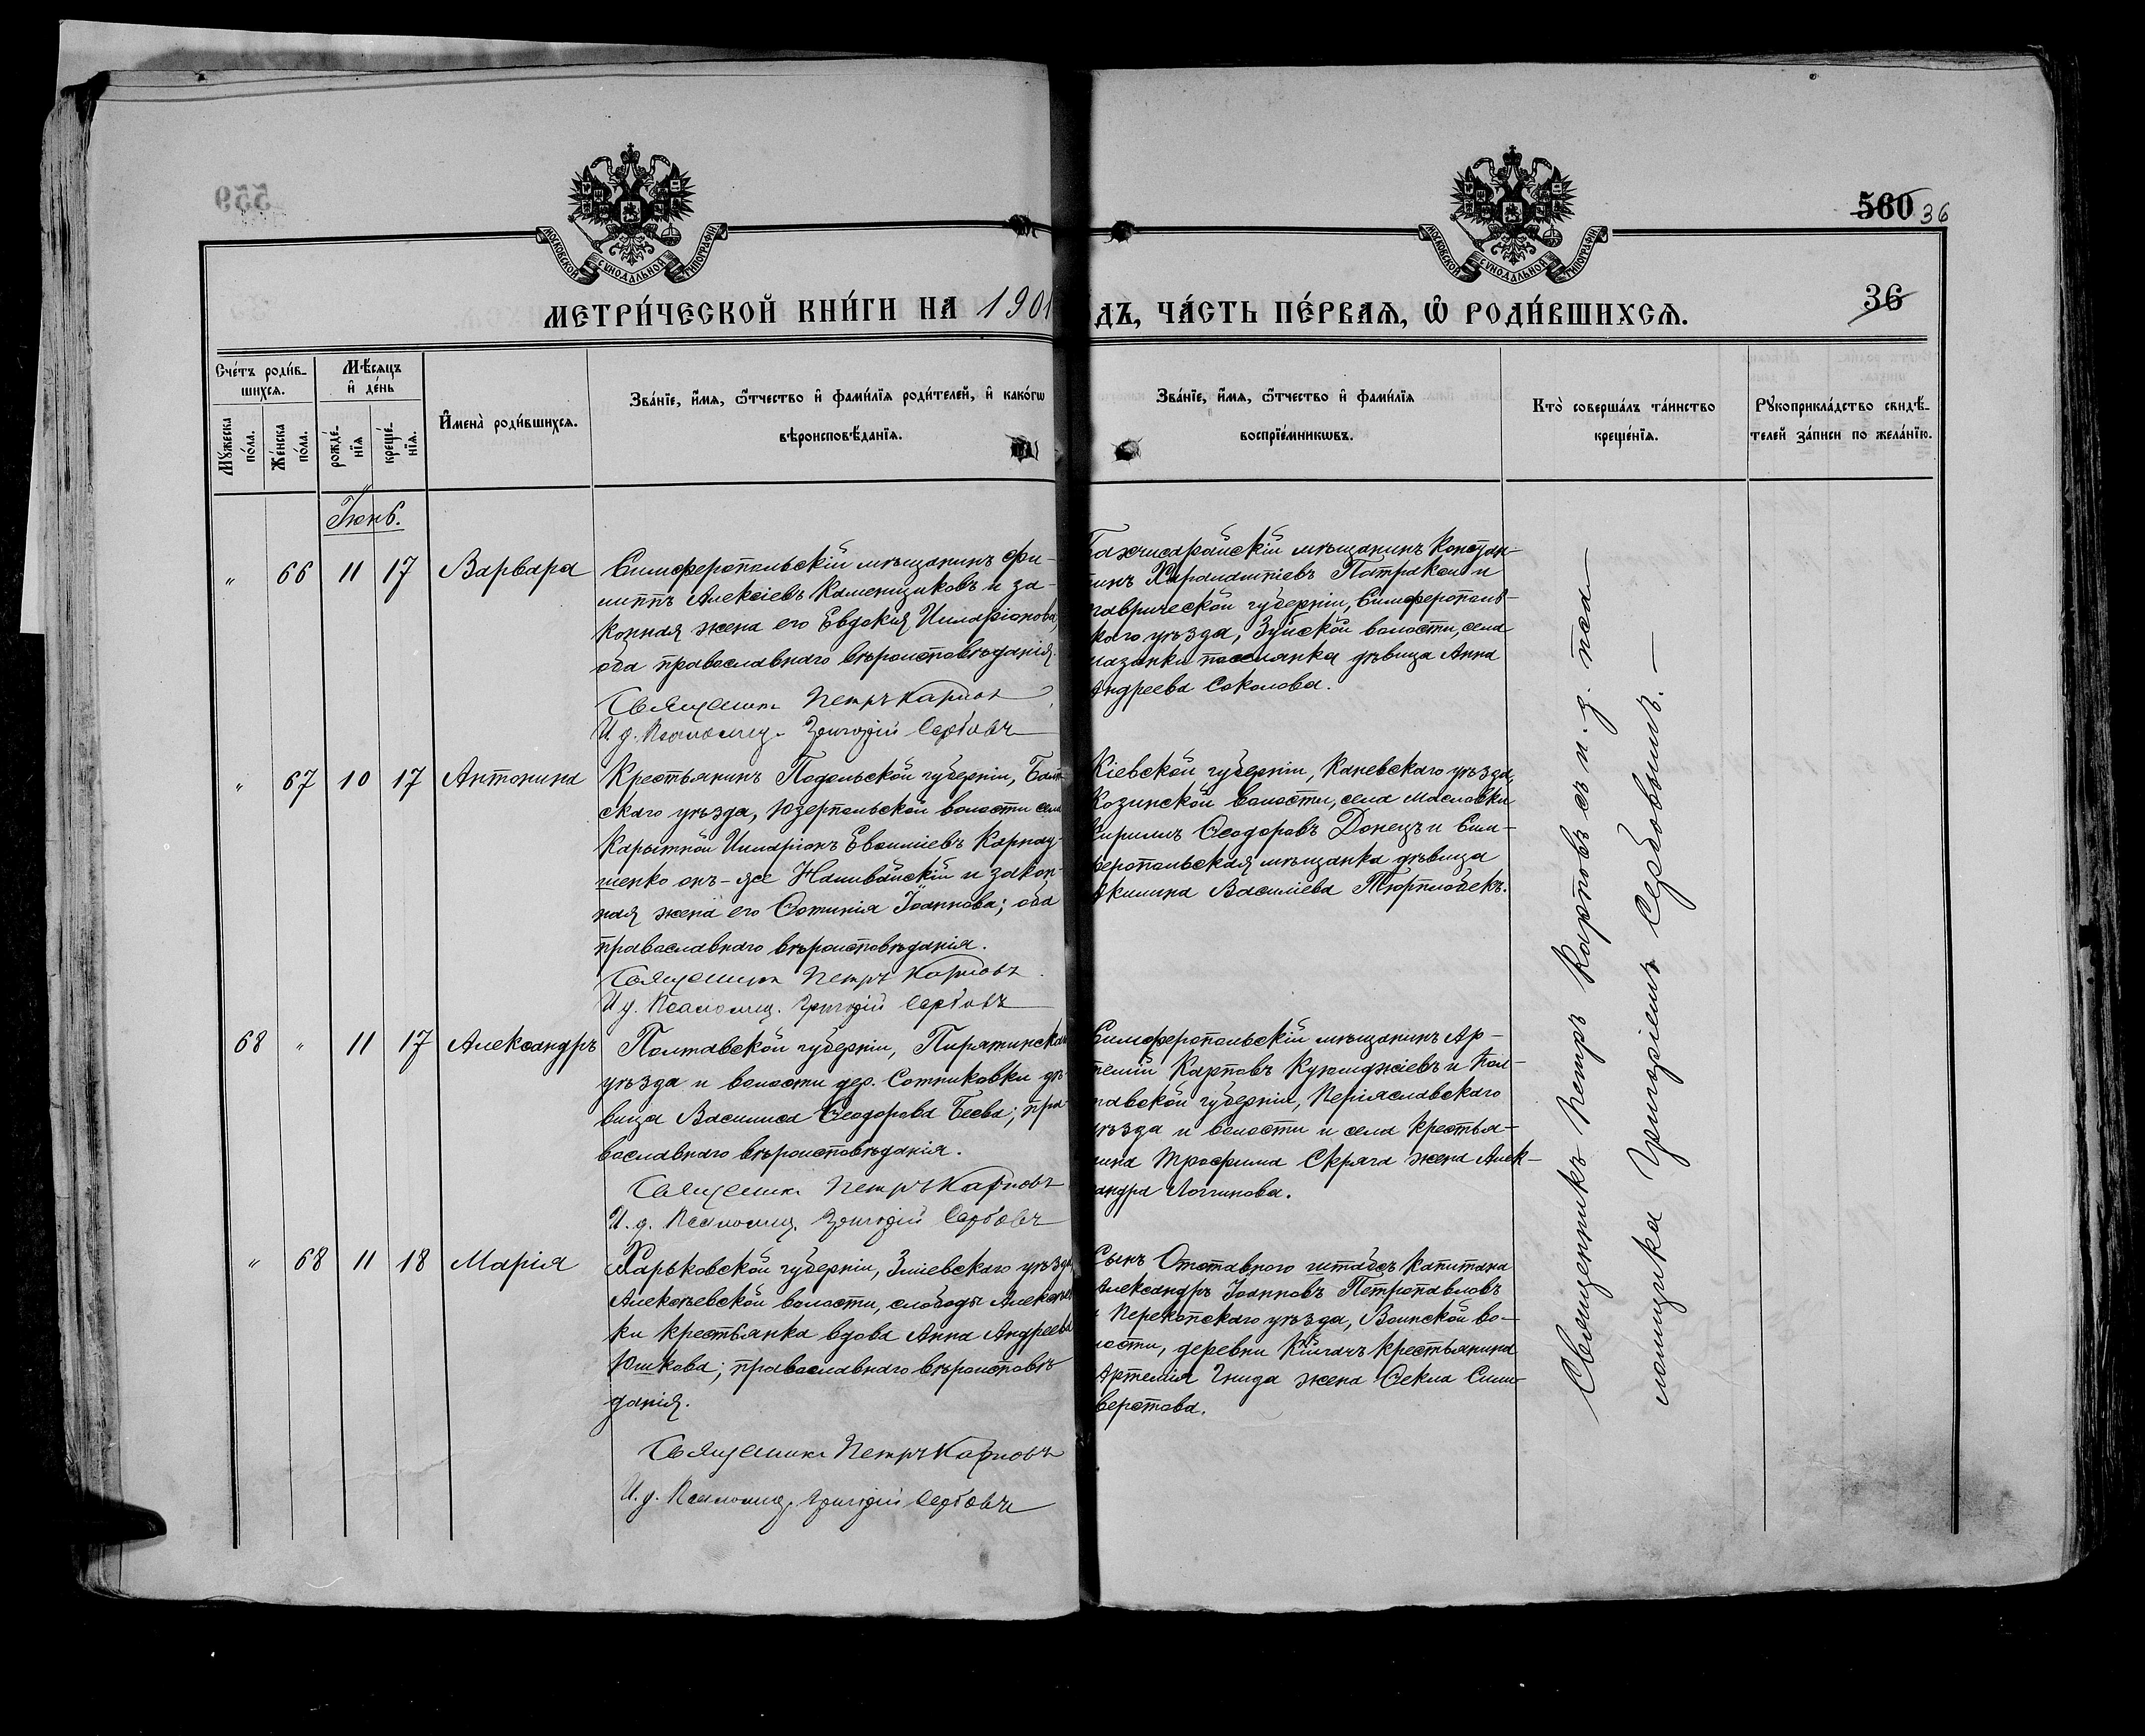 559
МОСКОВСКОЙ СѴНОДАЛЬНОЙ ТИПОГРАФІИ
МОСКОВСКОЙ СѴНОДАЛЬНОЙ ТИПОГРАФІИ
560 36
МЕТРИ́ЧЕСКОЙ КНИ́ГИ НА 1901
ДЪ, ЧА́СТЬ ПЕ́РВАѦ, Ѽ РОДИ́ВШИХСѦ.
36
Сче́тъ роди́в-
шихсѧ.
Мѣ́сяцъ
и҆ де́нь
Мꙋ́жеска по́ла.
Же́нска по́ла.
рожде́-
нїѧ
креще́-
нїѧ.
И҆мена̀ роди́вшихсѧ.
Зва́нїе, и҆́мѧ, ѻ҆́тчество и҆ фами́лїѧ роди́телей, и҆ како́гѡ
вѣроисповѣ́данїѧ.
Зва́нїе, и҆́мѧ, ѻ҆́тчество и҆ фами́лїѧ
воспрїе́мникѡвъ.
Кто̀ соверша́лъ та́инство
креще́нїѧ.
Рꙋкоприкла́дство свидѣ́-
телей за́писи по жела́нїю.
Іюнь.
" 66 11 17 Варвара
Симферопольскій мѣщанинъ Фи-
липпъ Алексіевъ Каменщиковъ и за-
конная жена его Евдокія Иларіонова,
оба православнаго вѣроисповѣданія.
Священникъ Петръ Карповъ
И. д. Псаломщ. Григорій Сербовъ
Бахчисарайскій мѣщанинъ Констан-
тинъ Харалампіевъ Патраки и
Таврической губерніи, Симферополь-
скаго уѣзда, Зуйской волости, села
Мазанки поселянка дѣвица Анна
Андреева Соколова.
" 67 10 17 Антонина
Крестьянинъ Подольской губерніи, Балт-
скаго уѣзда, Юзерпольской волости села
Карытной Иларіонъ Евѳиміевъ Карнау-
шенко онъ-же Наливайскій и закон-
ная жена его Ѳотинія Іоаннова; оба
православнаго вѣроисповѣданія.
Священникъ Петръ Карповъ
И. д. Псаломщ. Григорій Сербовъ
Кіевской губерніи, Каневскаго уѣзда,
Козинской волости, села Масловки
Кириллъ Ѳеодоровъ Донецъ и Сим-
феропольская мѣщанка дѣвица
Акилина Василіева
68 " 11 17 Александръ
Полтавской губерніи, Пирятинскаго
уѣзда и волости дер. Сотниковки дѣ-
вица Василиса Ѳеодорова Беева; пра-
вославнаго вѣроисповѣданія.
Священникъ Петръ Карповъ
И. д. Псаломщ. Григорій Сербовъ
Симферопольскій мѣщанинъ Ар-
темій Карповъ Куюмджіевъ и Пол-
тавской губерніи, Періяславскаго
уѣзда и волости и села крестья-
нина Трофима Скряга жена Алек-
сандра Логгинова.
" 68 11 18 Марія
Харьковской губерніи, Зміевскаго уѣзда,
Алексѣевской волости, слободы Алексѣев-
ки крестьянка вдова Анна Андреева
Юшкова; православнаго вѣроисповѣ-
данія.
Священникъ Петръ Карповъ
И. д. Псаломщ. Григорій Сербовъ
Сынъ Отставного штабсъ капитана
Александръ Іоанновъ Петропавловъ
и Перекопскаго уѣзда, Воинской во-
лости, деревни крестьянина
Артемія Гнида жена Ѳекла Сили-
верстова.
Священникъ Петръ Карповъ съ и. д. пса-
ломщика Григоріемъ Сербовымъ.—